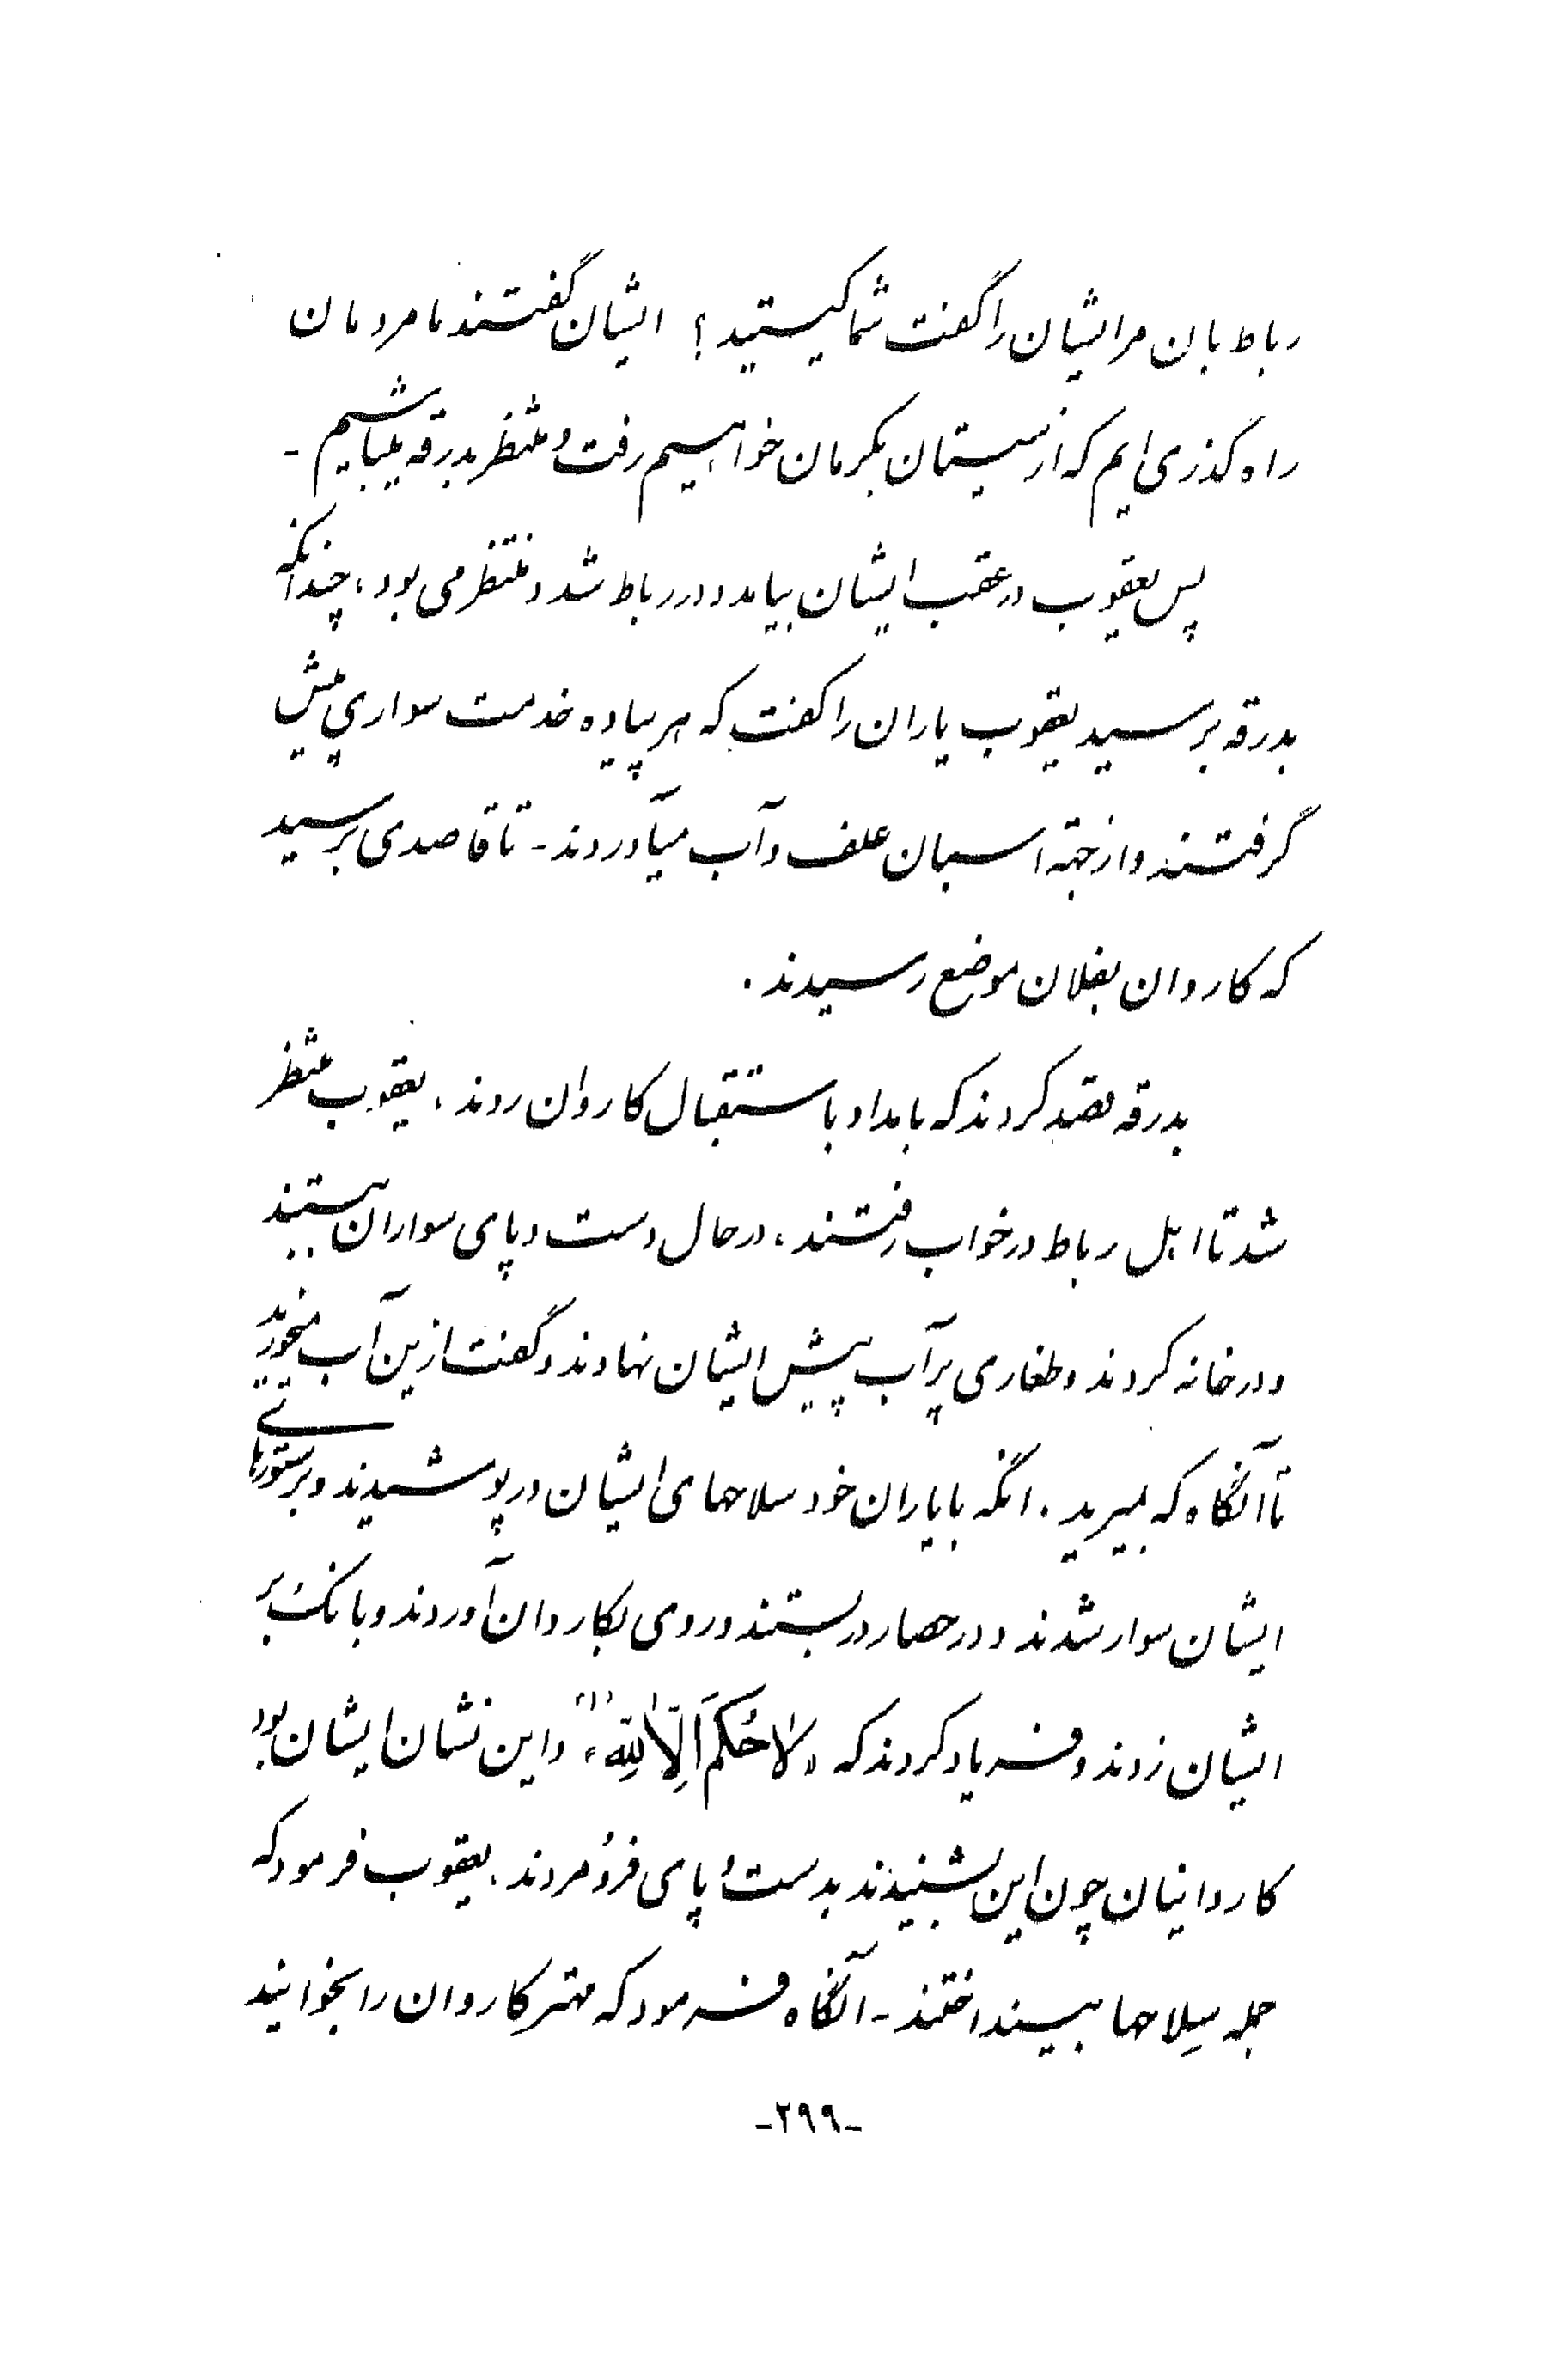 رباط بان مرایشان را گفت شما کیستید؟ ایشان گفتند ما مردمان
راه گذری ایم که از سیستان بکرمان خواهیم رفت و منتظر بدرقه میباشیم -
پس یعقوب در عقب ایشان بیامد و در رباط شد و منتظر می بود، چندانکه
بدرقه برسید یعقوب یاران را گفت که هر پیاده خدمت سواری پیش
گرفتند و از جهة اسبان علف و آب میآوردند - تا قاصدی برسید
که کاروان بفلان موضع رسیدند.
بدرقه قصد کردند که بامداد باستقبال کاروان روند، یعقوب منتظر
شد تا اهل رباط در خواب رفتند، در حال دست و پای سواران ببستند
و در خانه کردند و طغاری پر آب پیش ایشان نهادند و گفت ازین آب میخورید
تا آنگاه که بمیرید. انگه با یاران خود سلاحهای ایشان در پوشیدند و بر ستورهای
ایشان سوار شدند و در حصار در بستند و روی بکاروان آوردند و بانگ بر
ایشان زدند و فریاد کردند که «لاحُکمَ اِلّا لِلّه»(۱) و این نشان ایشان بود
کاروانیان چون این بشنیدند بدست و پای فرو مردند. یعقوب فرمود که
جمله سِلاحها بینداختند - آنگاه فرمود که مهتر کاروان را بخوانید
-۲۹۹-